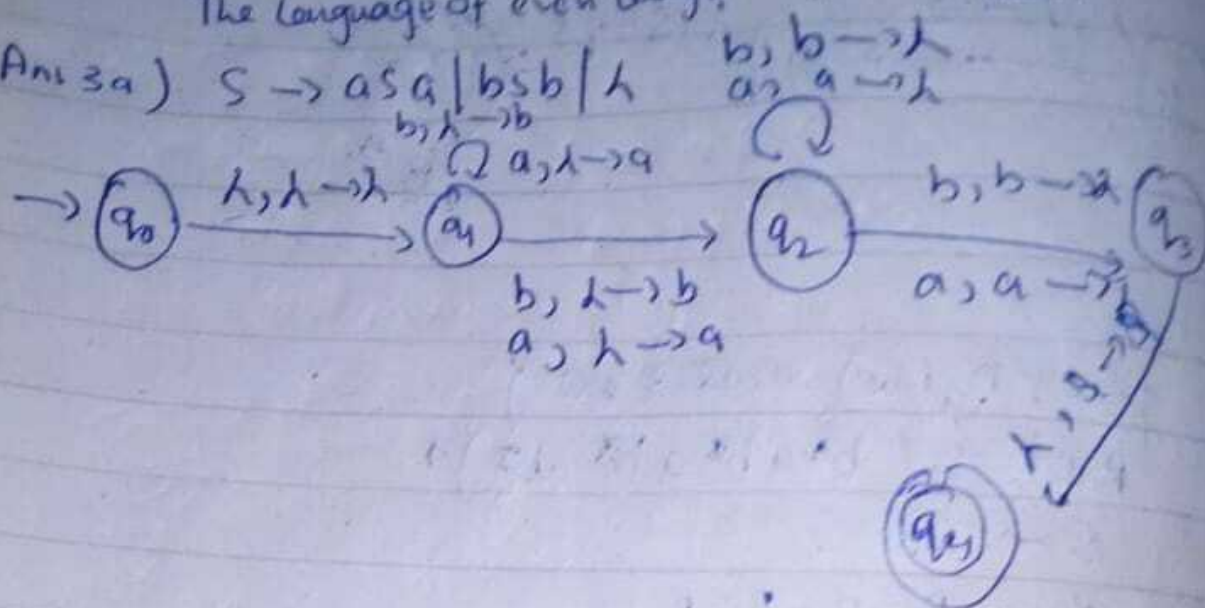 The Language of even
Ans 3a) S → aSa | bSb | λ
b, b → λ
a, a → λ
b, λ → b
a, λ → a
→ q0
λ, λ → λ
q1
q2
b, b → λ
q3
b, λ → b
a, λ → a
a, a →